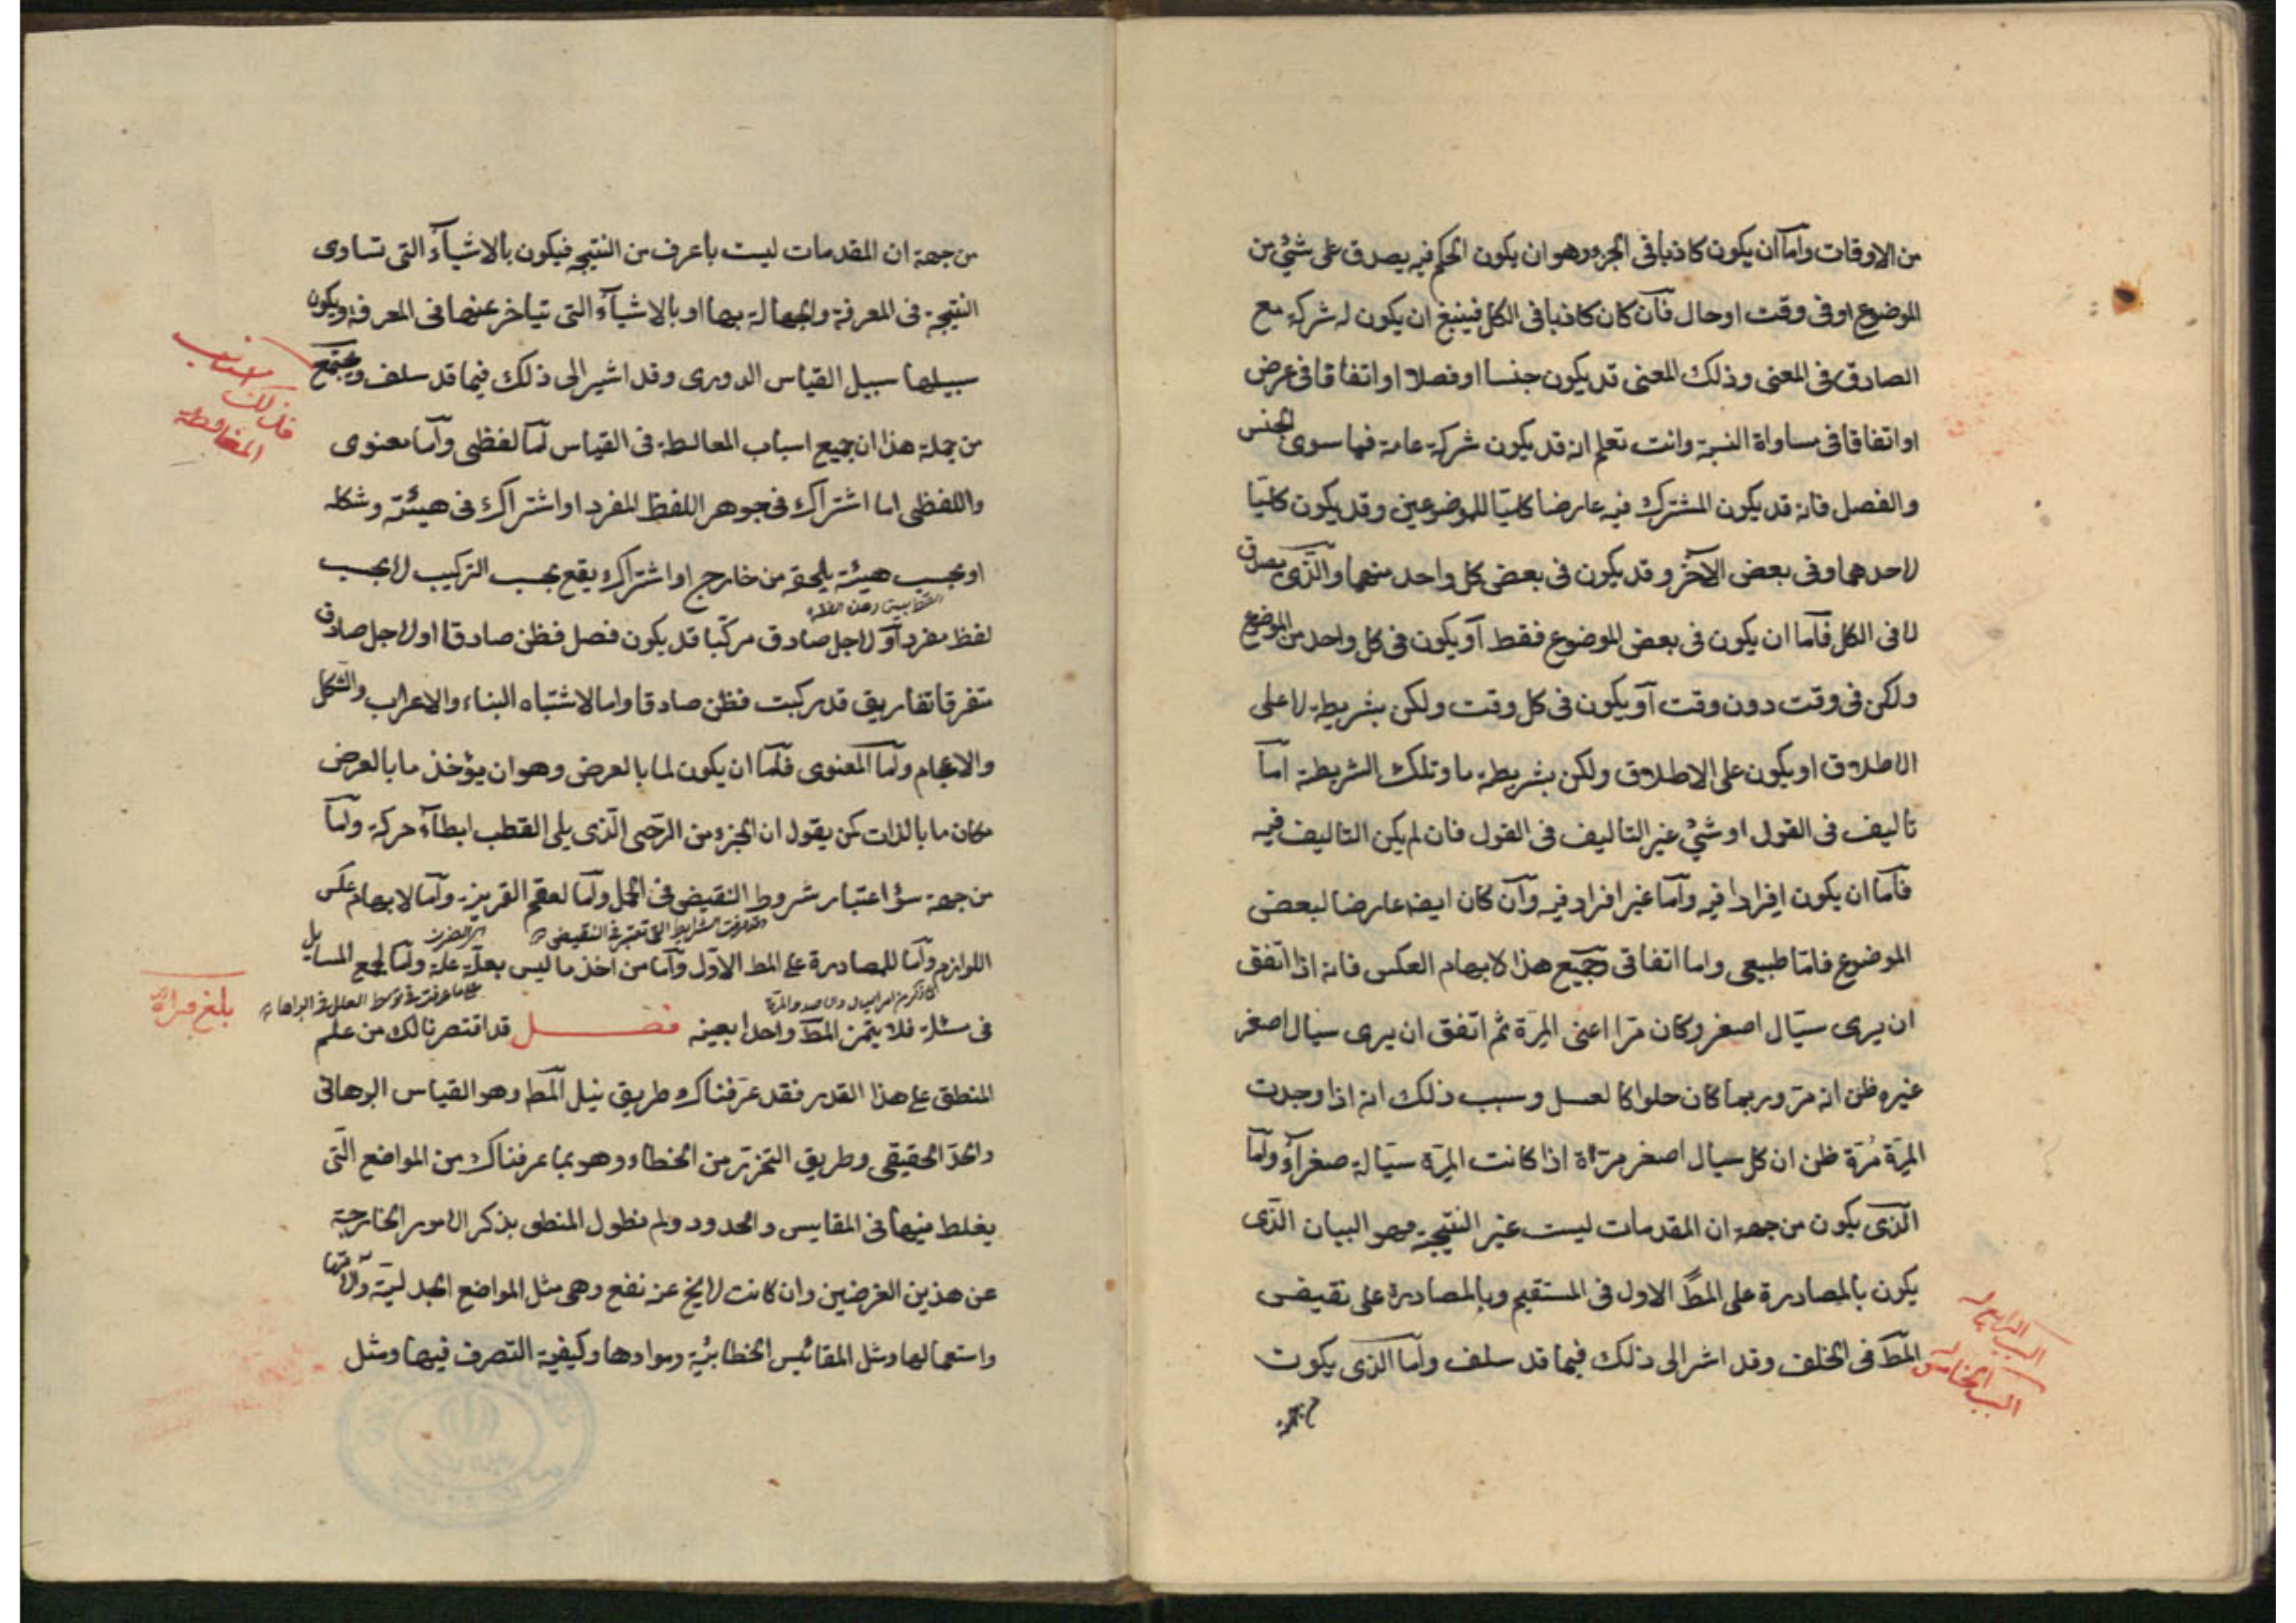 من الاوقات واما ان يكون كاذبا فى الجزء وهو ان يكون الحكم فيه يصدق على شئ من
الموضوع او فى وقت او حال فان كان كاذبا فى الكل فينبغ ان يكون له شركة مع
الصادق فى المعنى وذلك المعنى قد يكون جنسا او فصلا او اتفاقا فى عرض
او اتفاقا فى مساواة النسبة وانت تعلم انه قد يكون شركة عامة فيما سوى الجنس
والفصل فانه قد يكون المشترك فيه عارضا كليّا للموضوعين وقد يكون كليّا
لاحدهما وفى بعض الآخر وقد يكون فى بعض كل واحد منهما والّذى يصدق
لا فى الكل فاما ان يكون فى بعض الموضوع فقط او يكون فى كل واحد من الموضوع
ولكن فى وقت دون وقت او يكون فى كل وقت ولكن بشريطة لا على
الاطلاق او يكون على الاطلاق ولكن بشريطة ما وتلك الشريطة امّا
تاليف فى القول او شئ غير التاليف فى القول فان لم يكن التاليف فيه
فاما ان يكون افرادا فيه واما غير افراد فيه وان كان ايضه عارضا لبعض
الموضوع فامّا طبيعى واما اتفاقى وجميع هذا لابهام العكس فانه اذا اتفق
ان يرى سيّال اصفر وكان مرّا اعنى المِرّة ثم اتفق ان يرى سيال اصفر
غيره ظن انه مرّ وربما كان حلوا كالعسل وسبب ذلك انه اذا وجدت
المِرّة مُرّة ظن ان كل سيال اصفر مرّة اذا كانت المِرّة سيّالة صفرآء وامّا
الّذى يكون من جهة ان المقدمات ليست غير النتيجة وهو البيان الّذى
يكون بالمصادرة على المطّ الاول فى المستقيم وبالمصادرة على نقيض
المطّ فى الخلف وقد اشر الى ذلك فيما قد سلف واما الّذى يكون
السبب الرابع
السبب الخامس
من جهة
من جهة ان المقدمات ليست بأعرف من النتيجه فيكون بالاشيآء التى تساوى
النتيجة فى المعرفة والجهالة بها او بالاشيآء التى تتاخر عنها فى المعرفة ويكون
سبيلها سبيل القياس الدورى وقد اشير الى ذلك فيما قد سلف ويجتمع
من جملة هذا ان جميع اسباب المغالطة فى القياس امّا لفظى وامّا معنوى
واللفظى اما اشتراك فى جوهر اللفظ المفرد او اشتراك فى هيئته وشكله
او بحسب هيئة يلحقه من خارج او اشتراك يقع بحسب التركيب لا بحسب
لفظ مفرد او لاجل صادق مركّبا قد يكون فصل فظن صادقا او لاجل صادق
متفرقا تفاريق قد ركبت فظن صادقا واما لاشتباه البناء والاعراب والشكل
والاعجام وامّا المعنوى فامّا ان يكون لما بالعرض وهو ان يؤخذ ما بالعرض
مكان ما بالذات كمن يقول ان الجزء من الرّحى الّذى يلى القطب ابطآء حركة وامّا
من جهة سؤ اعتبار شروط النقيض فى الحمل وامّا لعقم القرينة وامّا لابهام عكس
اللوازم وامّا للمصادرة على المط الاوّل وامّا من اخذ ما ليس بعلّة علة وامّا لجمع المسايل
فى مسئلة فلا يتميز المطّ واحدا بعينه فصل قد اقتصرنا لك من علم
المنطق على هذا القدر فقد عرّفناك طريق نيل المطّ وهو القياس البرهانى
والحدّ الحقيقى وطريق التحرّز من الخطاء وهو بما عرفناك من المواضع الّتى
يغلط فيها فى المقاييس والحدود ولم نطول المنطق بذكر الامور الخارجة
عن هذين الغرضين وان كانت لا يخ عن نفع وهى مثل المواضع الجدليّة وآلاتها
واستعمالها ومثل المقائيس الخطابيّة وموادها وكيفية التصرف فيها ومثل
اسباب
المغالطة
بلغ قراة